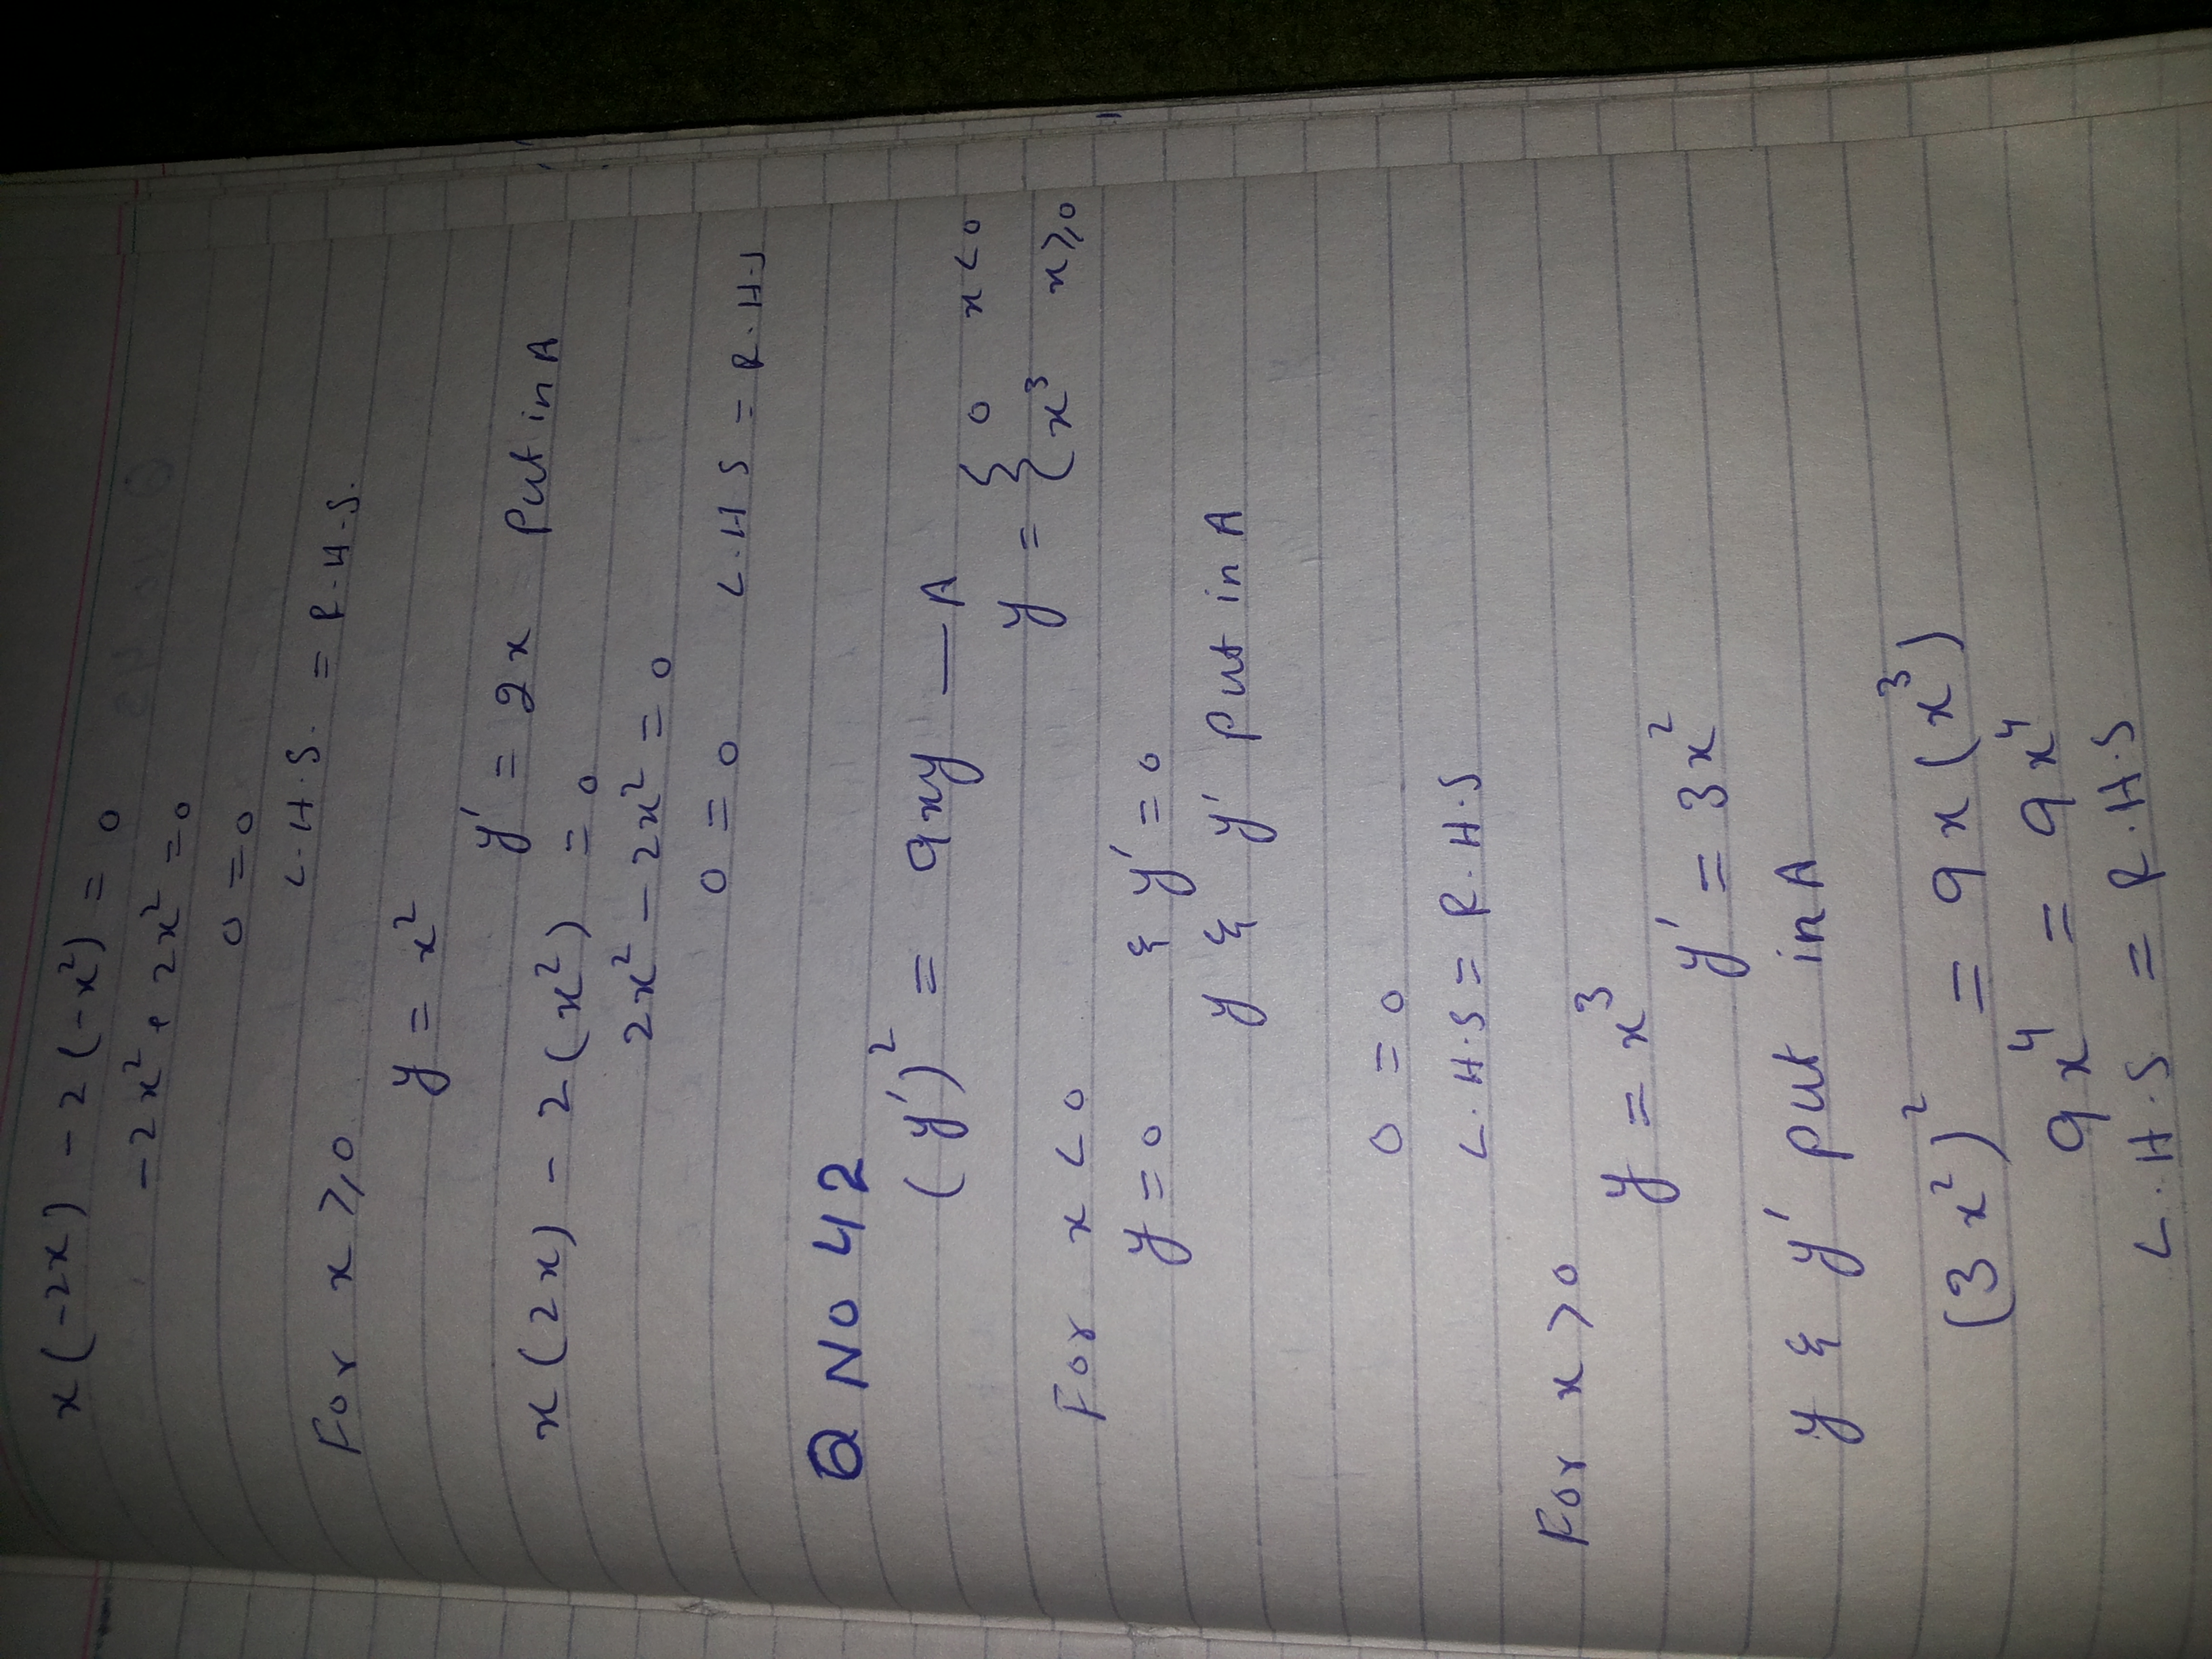 x(-2x) - 2(-x²) = 0
-2x² + 2x² = 0
0 = 0
L.H.S. = R.H.S.
For x ≥ 0
y = x²
y' = 2x Put in A
x(2x) - 2(x²) = 0
2x² - 2x² = 0
0 = 0 L.H.S = R.H.S
Q No 42
(y')² = 9xy — A
y = { 0 x < 0
x³ x ≥ 0
For x < 0
y = 0 & y' = 0
y & y' Put in A
0 = 0
L.H.S = R.H.S
For x > 0
y = x³
y' = 3x²
y & y' put in A
(3x²)² = 9x(x³)
9x⁴ = 9x⁴
L.H.S = R.H.S